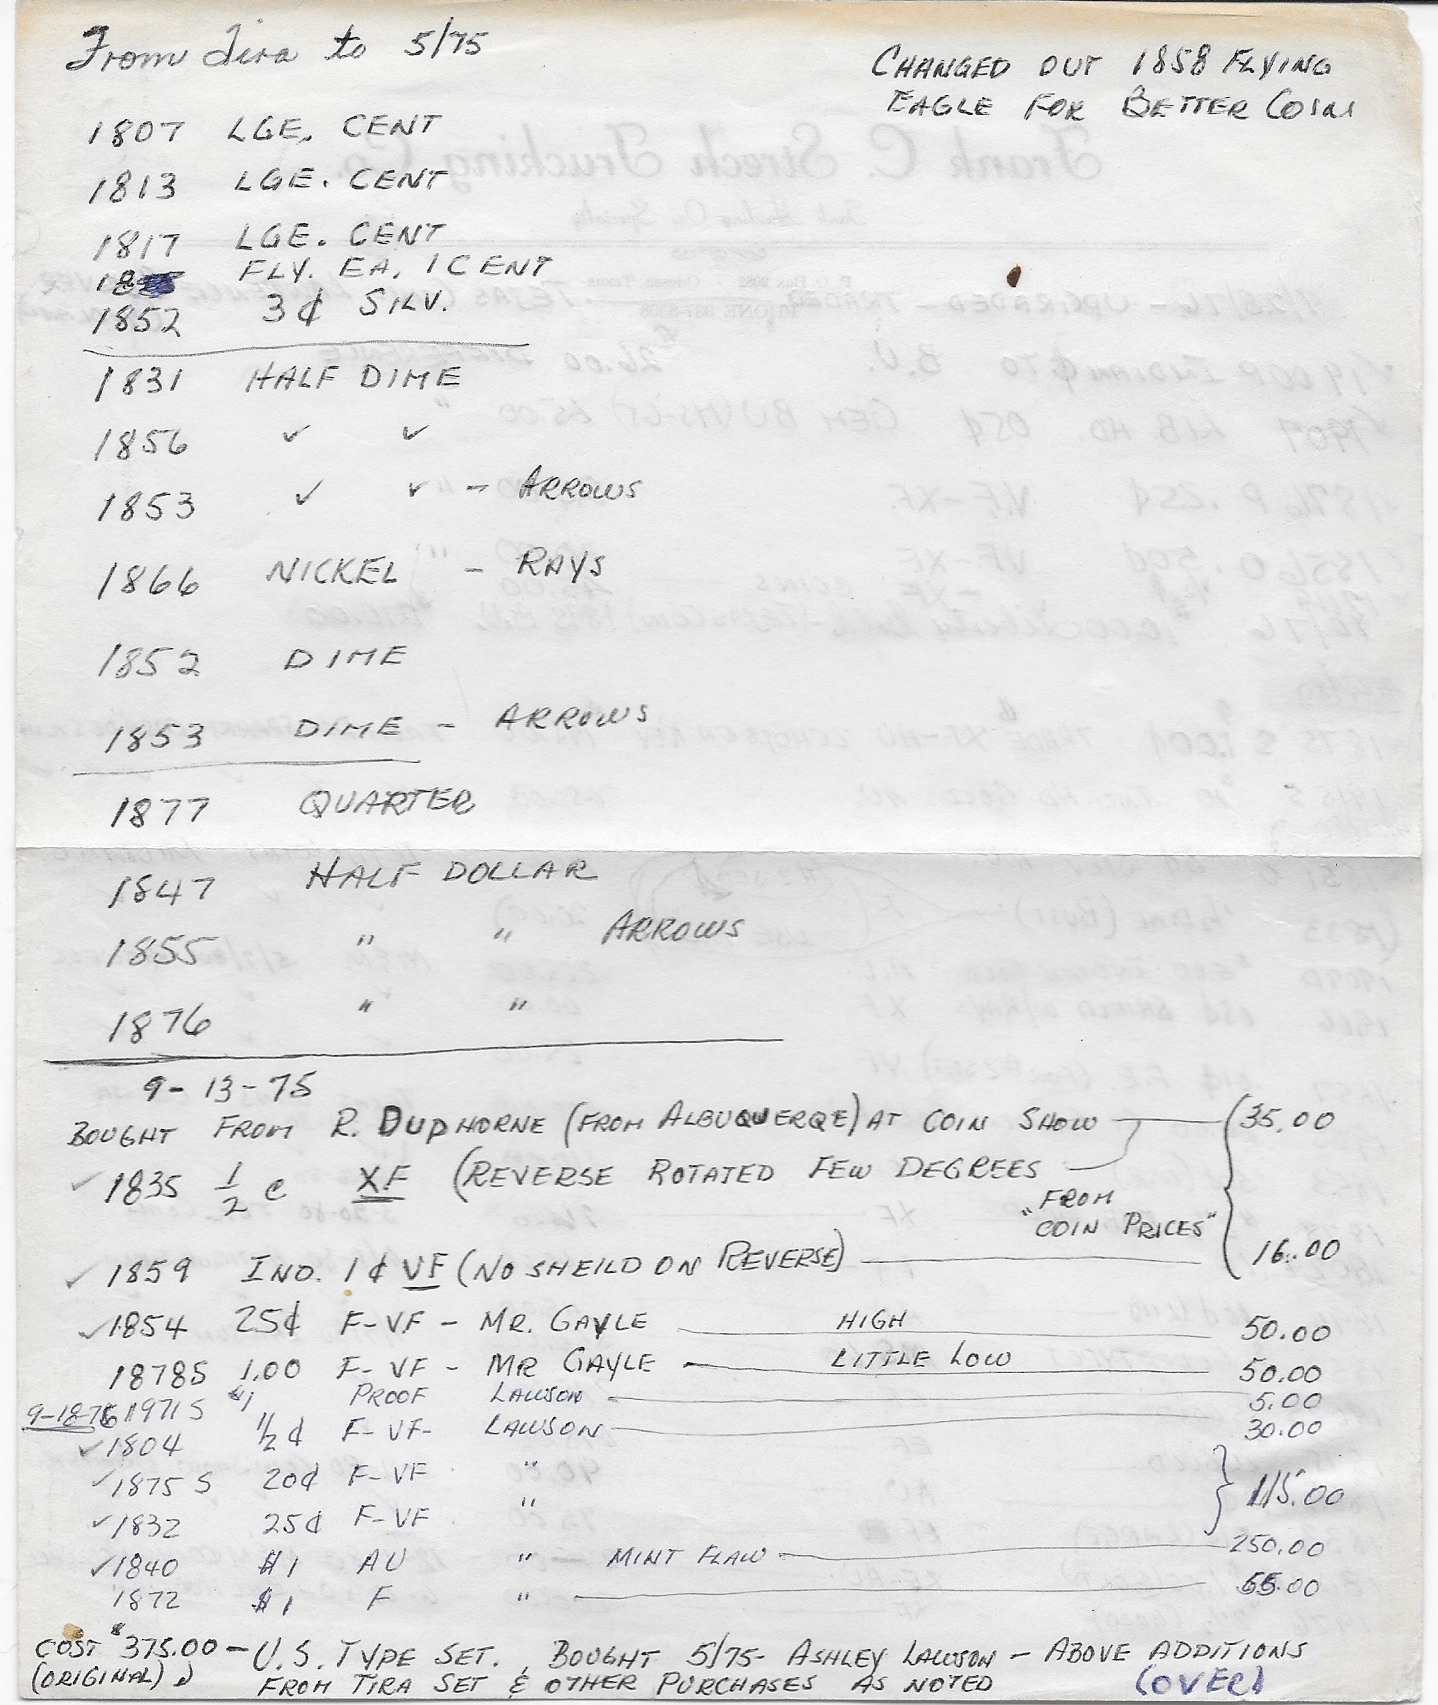 From Tira to 5/75
CHANGED OUT 1858 FLYING
EAGLE FOR BETTER COIN
1807 LGE. CENT
1813 LGE. CENT
1817 LGE. CENT
FLY. EA. 1 CENT
1852 3¢ SILV.
1831 HALF DIME
1856 ✓ ✓
1853 ✓ ✓ - ARROWS
1866 NICKEL - RAYS
1852 DIME
1853 DIME - ARROWS
1877 QUARTER
1847 HALF DOLLAR
1855 " " ARROWS
1876 " "
9-13-75
BOUGHT FROM R. DUPHORNE (FROM ALBUQUERQE) AT COIN SHOW 35.00
✓ 1835 1/2 c XF (REVERSE ROTATED FEW DEGREES
"FROM COIN PRICES"
✓ 1859 IND. 1¢ VF (NO SHEILD ON REVERSE) 16.00
✓ 1854 25¢ F-VF - MR. GAYLE HIGH 50.00
1878S 1.00 F-VF - MR GAYLE LITTLE LOW 50.00
9-18-76 1971 S $1 PROOF LAWSON - 5.00
✓ 1804 1/2¢ F-VF- LAWSON 30.00
✓ 1875 S 20¢ F-VF " 115.00
✓ 1832 25¢ F-VF "
✓ 1840 $1 AU " - MINT FLAW - 250.00
1872 $1 F " 65.00
COST $375.00 - U.S. TYPE SET. BOUGHT 5/75- ASHLEY LAWSON - ABOVE ADDITIONS
(ORIGINAL) FROM TIRA SET & OTHER PURCHASES AS NOTED (OVER)